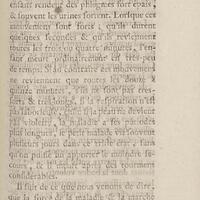 enfants rendent des phlegmes fort épais,
& souvent les urines sortent. Lorsque ces
mouvemens sont forts, qu'ils durent
quelques secondes & qu'ils reviennent
toutes les trois ou quatre minutes, l'en-
fant meurt ordinairement en très peu
de temps. Si au contraire ces mouvemens
ne reviennent que toutes les douze à
quinze minutes, s'ils ne sont pas
forts & très longs, si la respiration n'est
pas laborieuse, que la peau ne devient
pas violette, la maladie a ses périodes
plus longues, le petit malade vit souvent
plusieurs jours dans ce triste état, sans
qu'on puisse lui apporter le moindre se-
cours, & il meurt après des tourmens
considérables.
Il suit de ce que nous venons de dire,
que la force de la maladie & la marche